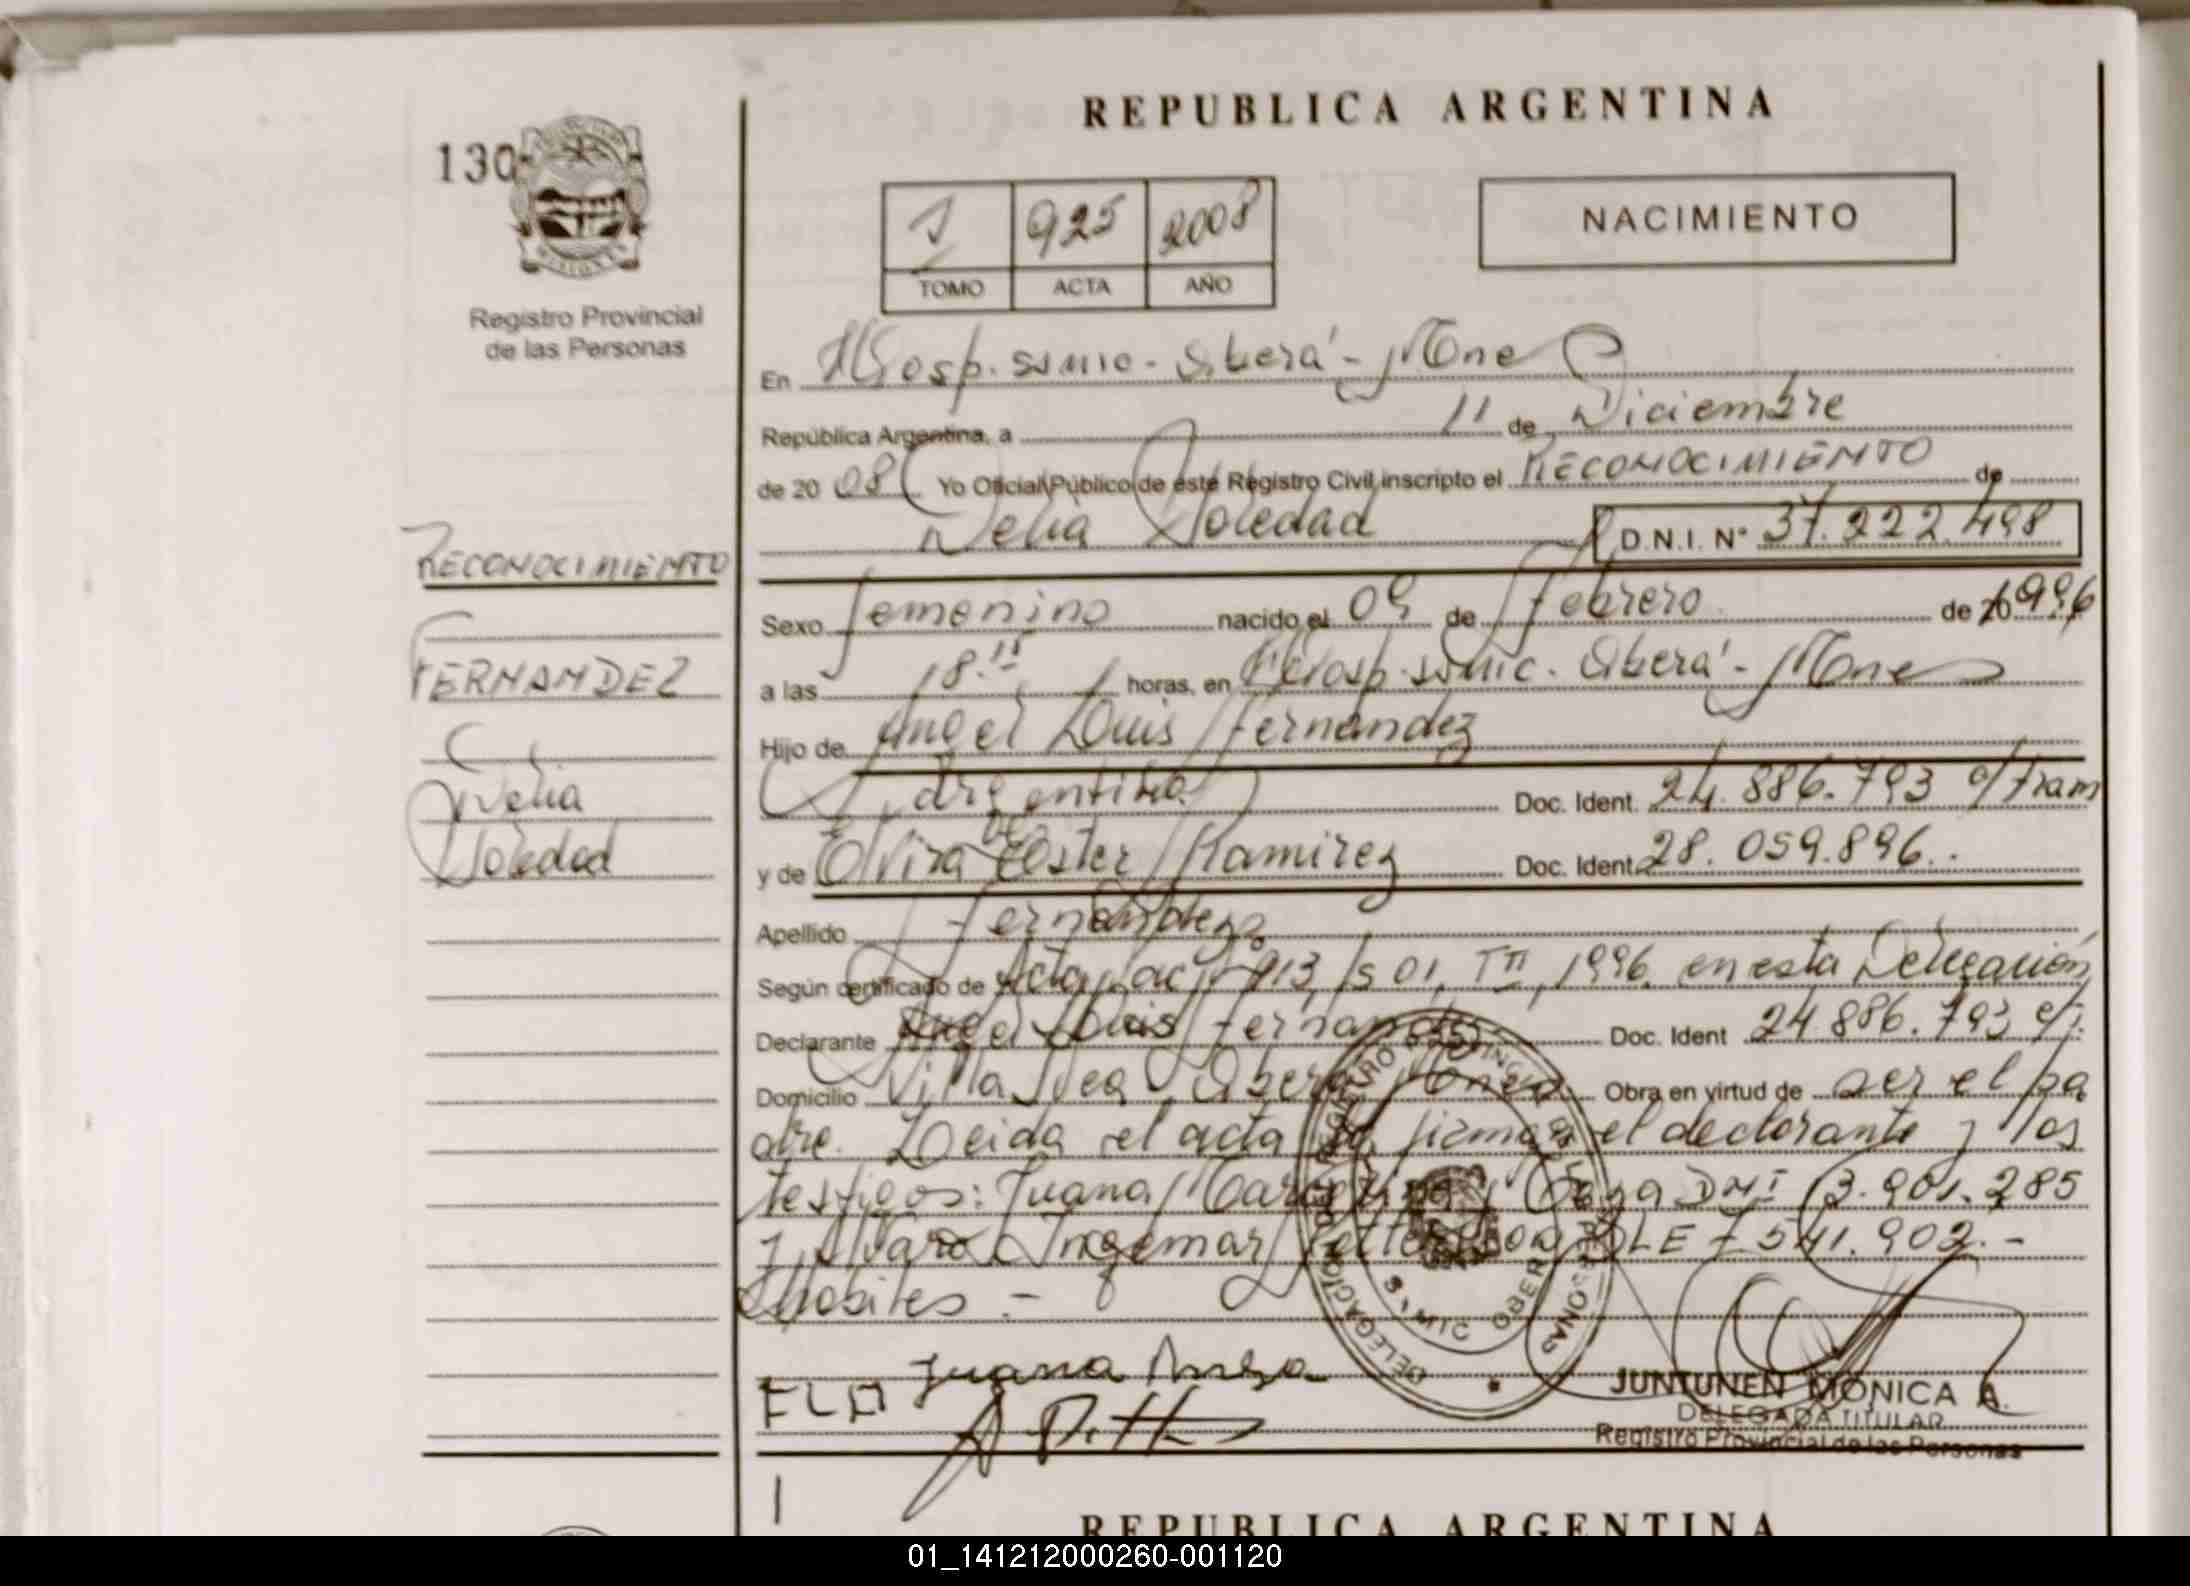 REPUBLICA ARGENTINA
130
1 925 2008
TOMO ACTA AÑO
NACIMIENTO
Registro Provincial
de las Personas
En Hosp. SSMIC - Oberá - Mnes
República Argentina, a 11 de Diciembre
de 2008 Yo Oficial Público de este Registro Civil, inscripto el RECONOCIMIENTO de
Delia Soledad D.N.I. N° 37.222.498
RECONOCIMIENTO
FERNANDEZ
Delia
Soledad
Sexo femenino nacido el 09 de febrero de 1996
a las 18.15 horas, en Hosp. SSMIC. Oberá - Mnes
Hijo de Angel Luis Fernandez
Argentina Doc. Ident. 24.886.793 c/tram
y de Elvira Ester Ramirez Doc. Ident. 28.059.896.
Apellido Fernandez
Según certificado de Acta nac. 913, 1996, en esta Delegación
Declarante Angel Luis Fernandez Doc. Ident 24.886.793 c/t.
Domicilio Villa Oberá Mnes Obra en virtud de ser el pa
dre. Leida el acta la firman el declarante y los
testigos: Juana DNI 3.901.285
y Alvaro Ingemar LE 7.541.902.-
Hábiles.-
DELEGACION
SSMIC OBERA
Juana
JUNTUNEN MONICA A.
DELEGADA TITULAR
Registro Provincial de las Personas
REPUBLICA ARGENTINA
01_141212000260-001120